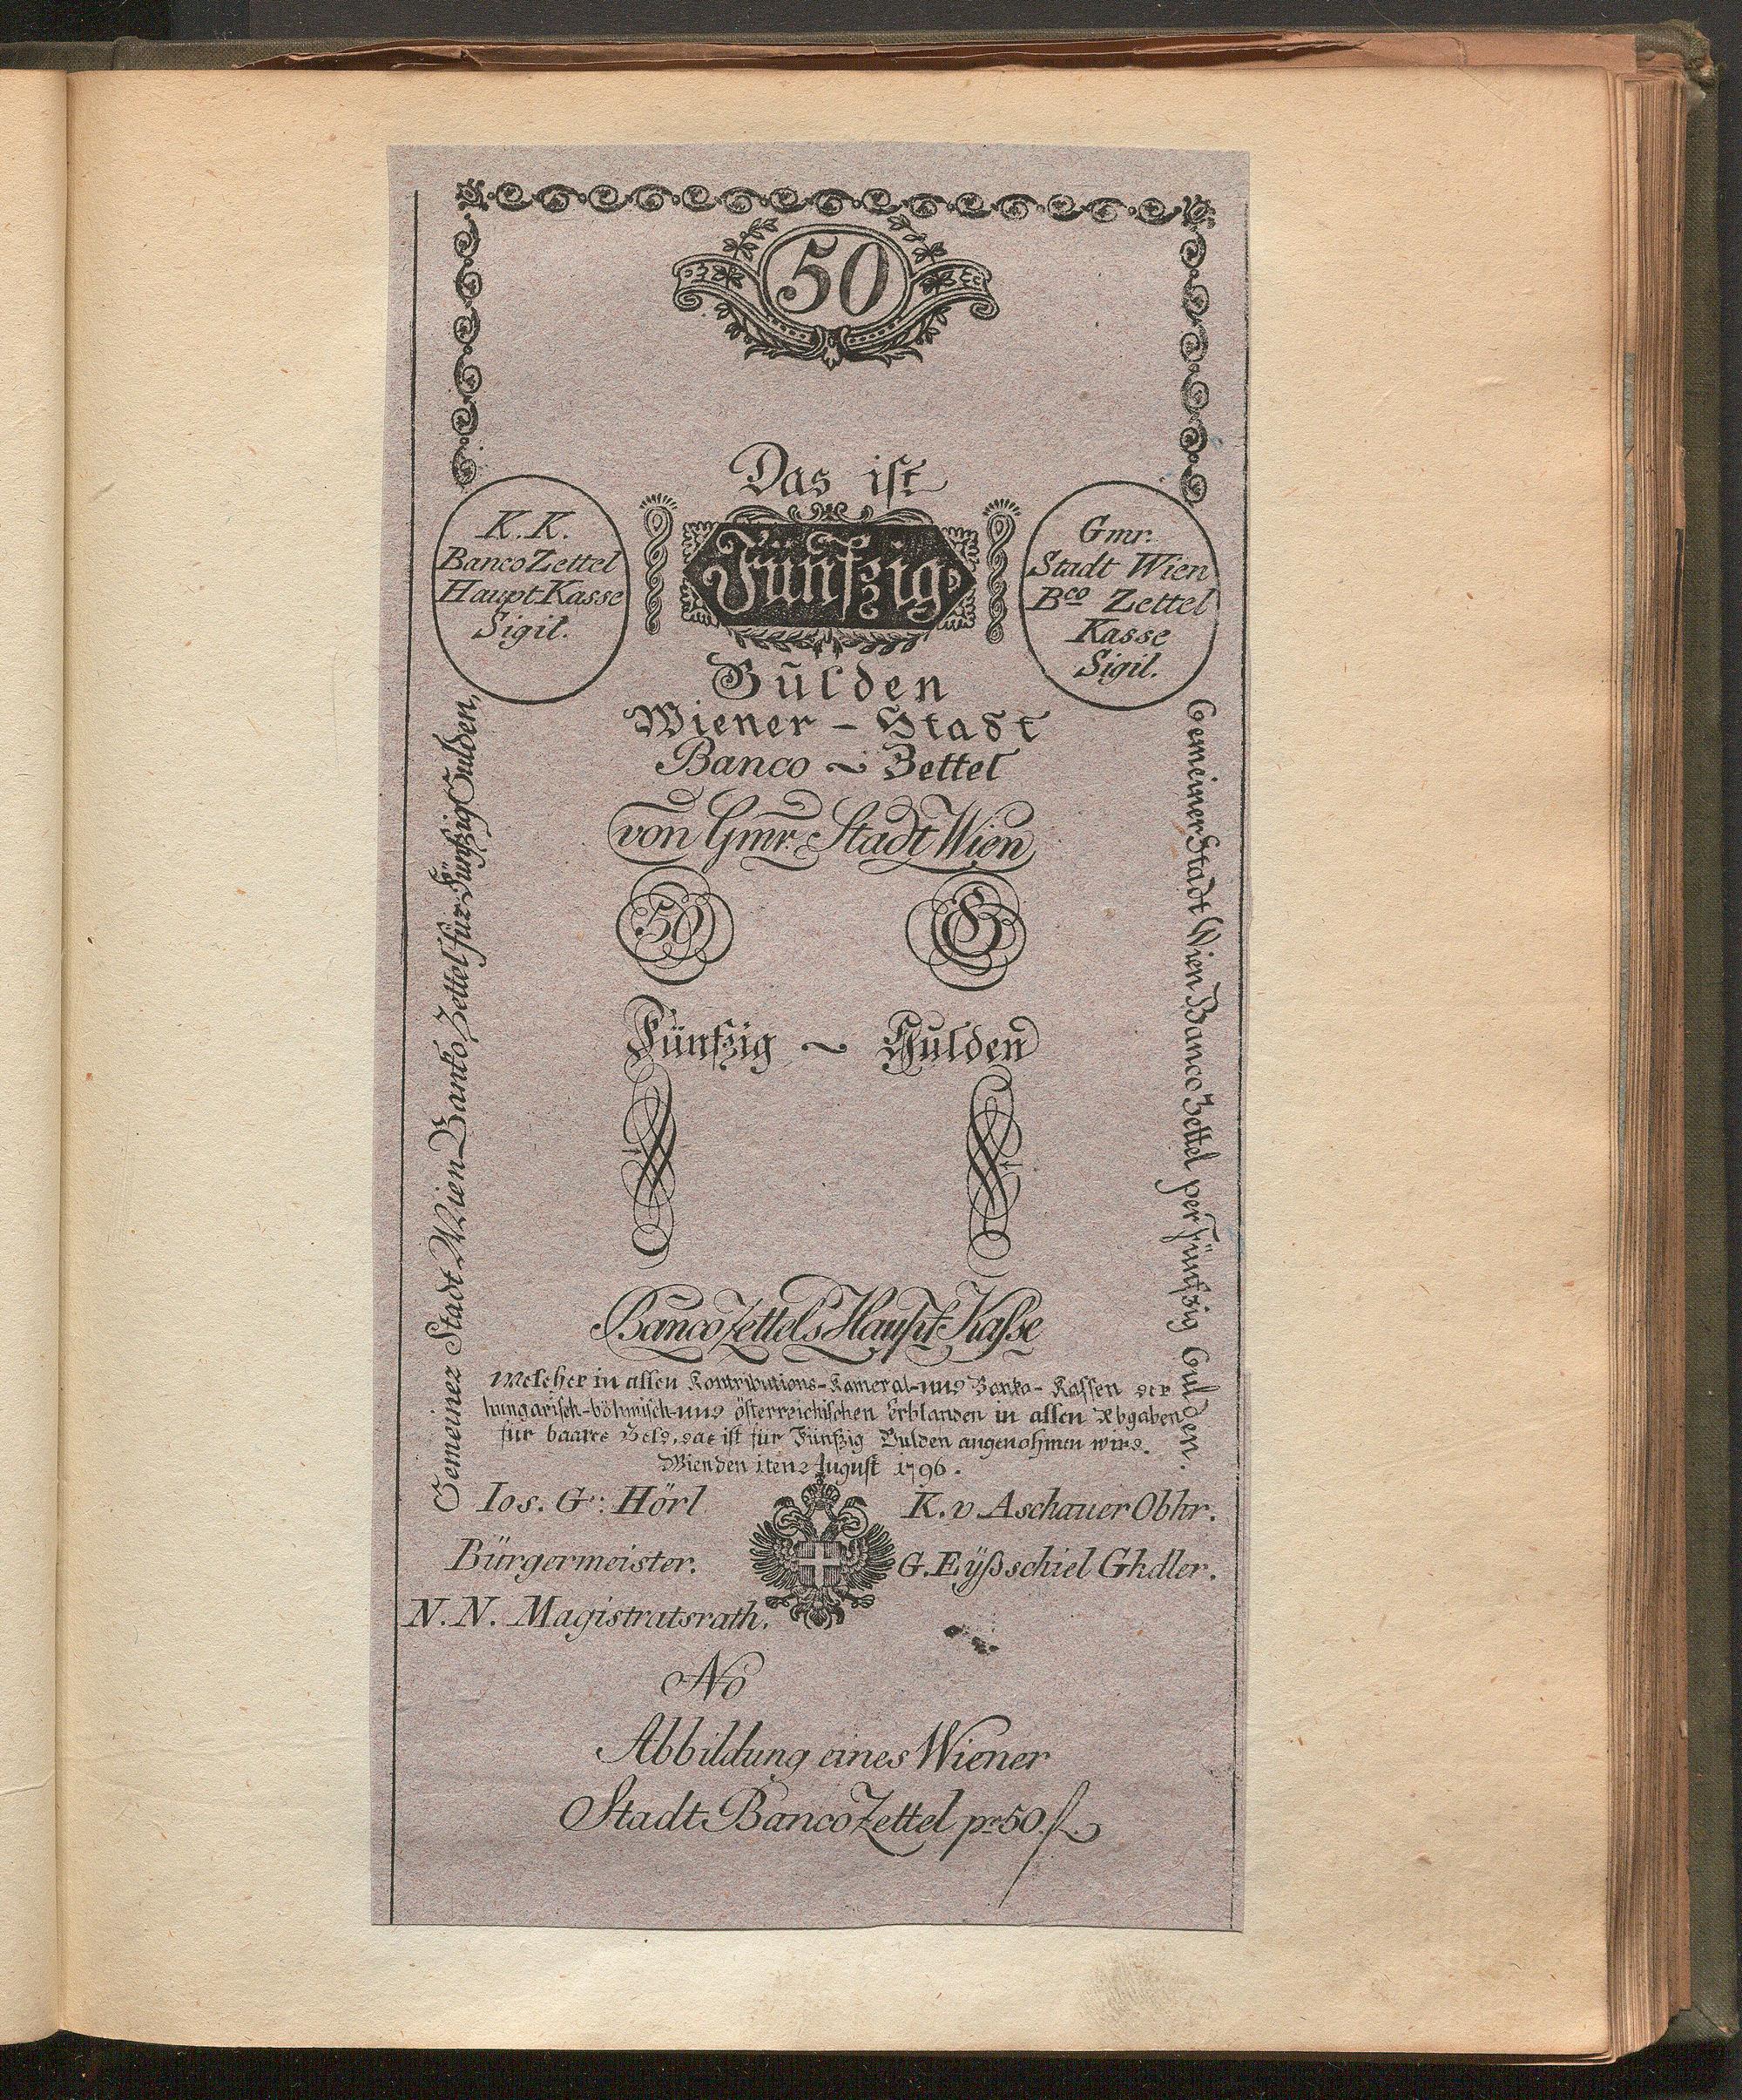 50
Das ist
K. K.
Banco Zettel
Haupt Kasse
Sigil.
Fünfzig
Gmr.
Stadt Wien
Bco Zettel
Kasse
Sigil.
Gulden
Wiener - Stadt
Banco ~ Zettel
von Gmr. Stadt Wien
50 G
Fünfzig ~ Gulden
Banco Zettels Haupt Kasse
Welcher in allen Kontributions-Kameral-und Banko-Kassen der
hungarisch-böhmisch-und österreichischen Erblanden in allen Abgaben
für baares Geld, das ist für Fünfzig Gulden angenohmen wird.
Wien den 1ten August 1796.
Ios. G: Hörl
Bürgermeister.
N. N. Magistratsrath.
K. v Aschauer Obhr.
G. Eÿßschiel Ghdler.
No
Abbildung eines Wiener
Stadt Banco Zettel pr 50. fl.
Gemeiner Stadt Wien Banko Zettel für Fünfzig Gulden,
Gemeiner Stadt Wien Banco Zettel per Fünfzig Gulden.